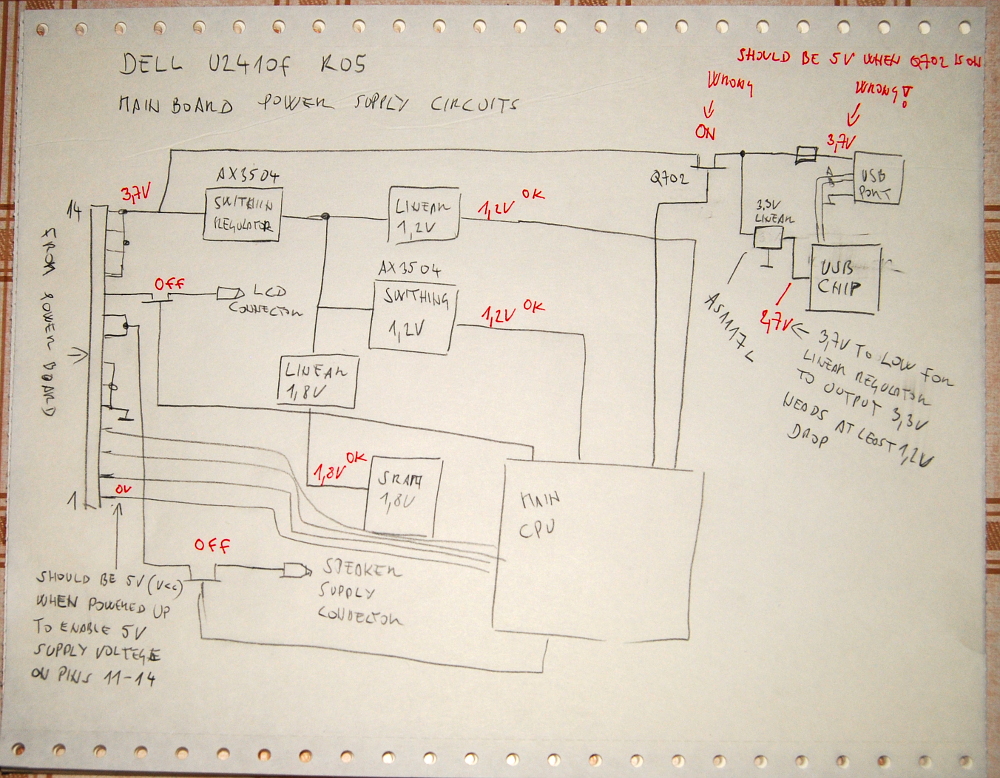 SHOULD BE 5V WHEN Q702 IS ON
DELL U2410f R05
MAIN BOARD POWER SUPPLY CIRCUITS
WRONG
WRONG!
ON
3,7V
Q702
USB
PORT
AX3504
3,7V
SWITHIN
REGULATOR
LINEAR
1,2V
1,2V OK
3,3V
LINEAR
14
FROM POWER BOARD
USB
CHIP
AX3504
SWITHING
1,2V
1,2V OK
OFF
LCD
CONNECTOR
AS1117L
2,7V
3,7V TO LOW FOR
LINEAR REGULATOR
TO OUTPUT 3,3V
NEADS AT LEAST 1,2V
DROP
LINEAR
1,8V
1,8V OK
SRAM
1,8V
MAIN
CPU
0V
1
OFF
SPEAKER
SUPPLY
CONNECTOR
SHOULD BE 5V (Vcc)
WHEN POWERED UP
TO ENABLE 5V
SUPPLY VOLTEGE
ON PINS 11-14